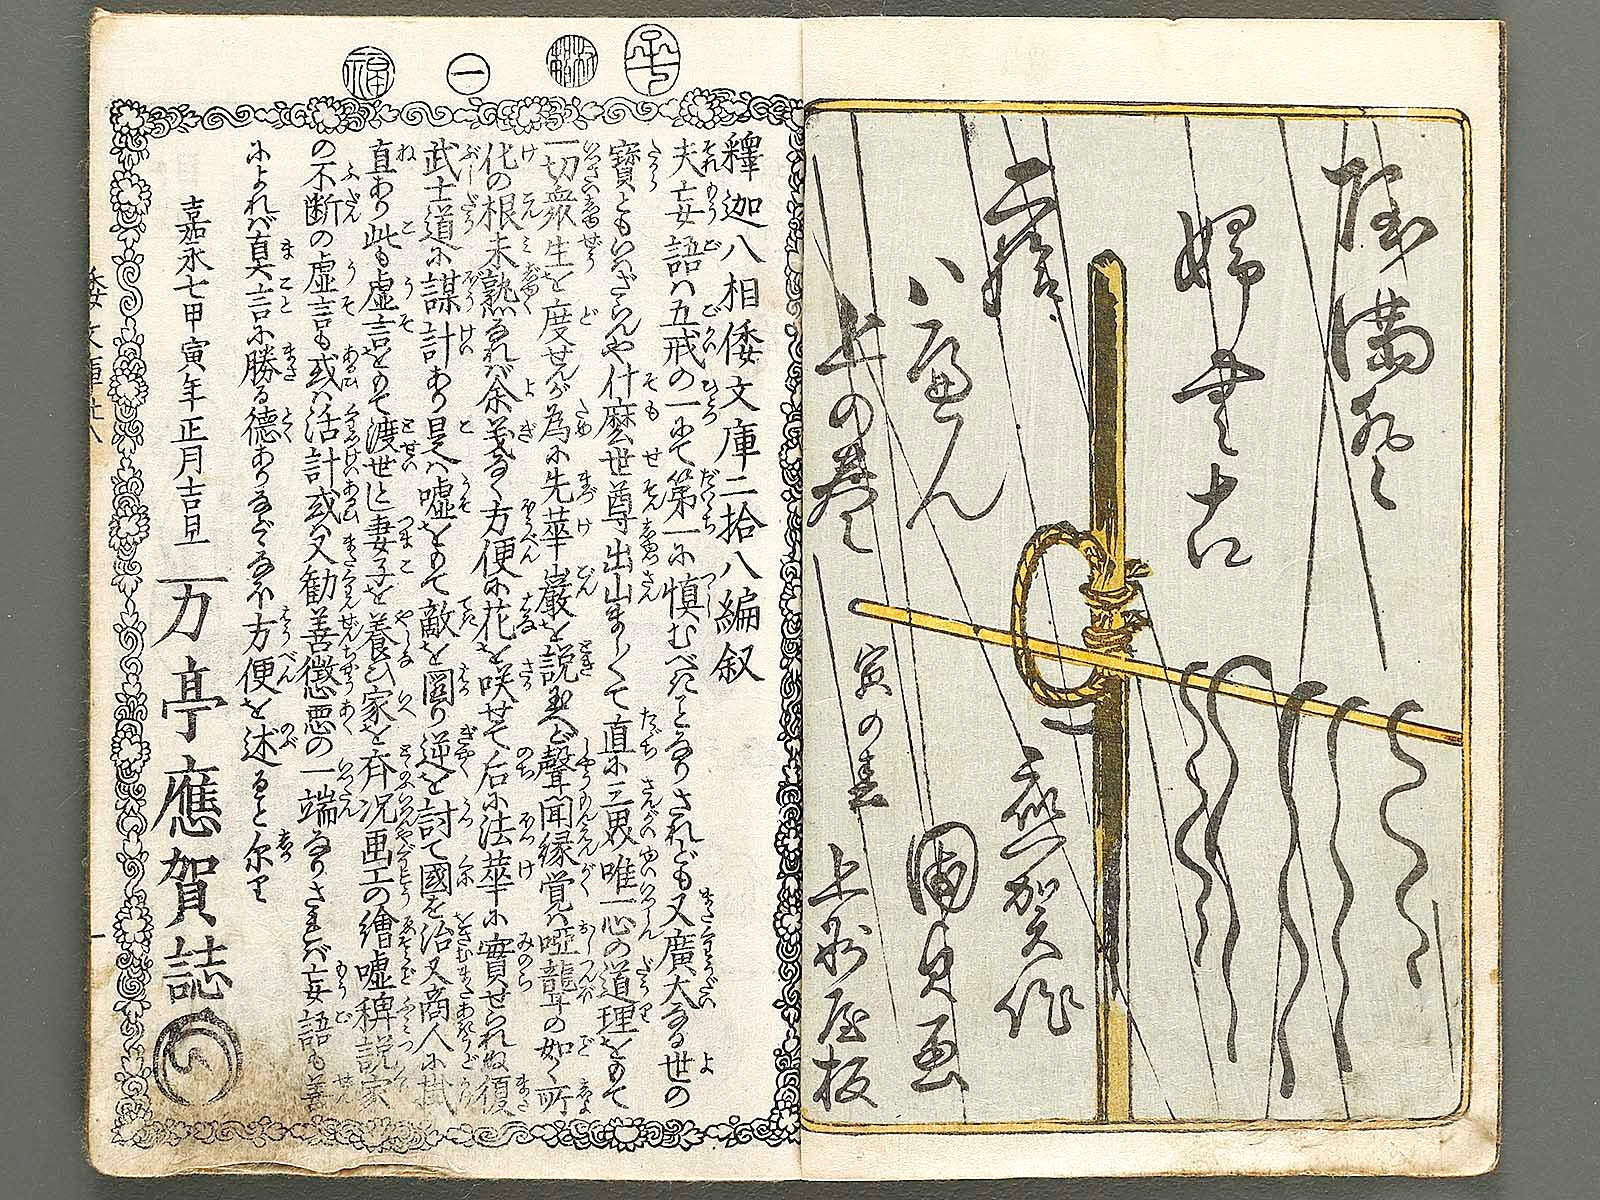 二拾八へん
上の巻
寅の春
應賀作
國貞画
上州屋板
釋迦八相倭文庫二拾八編叙
夫妄語ハ五戒の一にて第一に慎むべきことなりされども又廣大なる世の
寳ともいはざらんや什麽世尊出山ましくて直に三界唯一心の道理をもて
一切衆生を度せんが為に先華嚴を説玉へど聲聞縁覚ハ啞聾の如く所
化の根未熟なれバ余義なく方便に花を咲せて后に法華に實せられぬ復
武士道に謀計あり是ハ嘘をもて敵を圖り逆を討て國を治又商人に掛
直あり此も虚言をもて渡世とし妻子を養ひ家を斉况画工の繪嘘稗説家
の不断の虚言も或ハ活計或又勸善懲悪の一端なりされバ妄語も善
によれバ真言に勝る德ありなどゝなん方便を述ること尓り
嘉永七甲寅年正月吉旦
万亭應賀誌
福
一